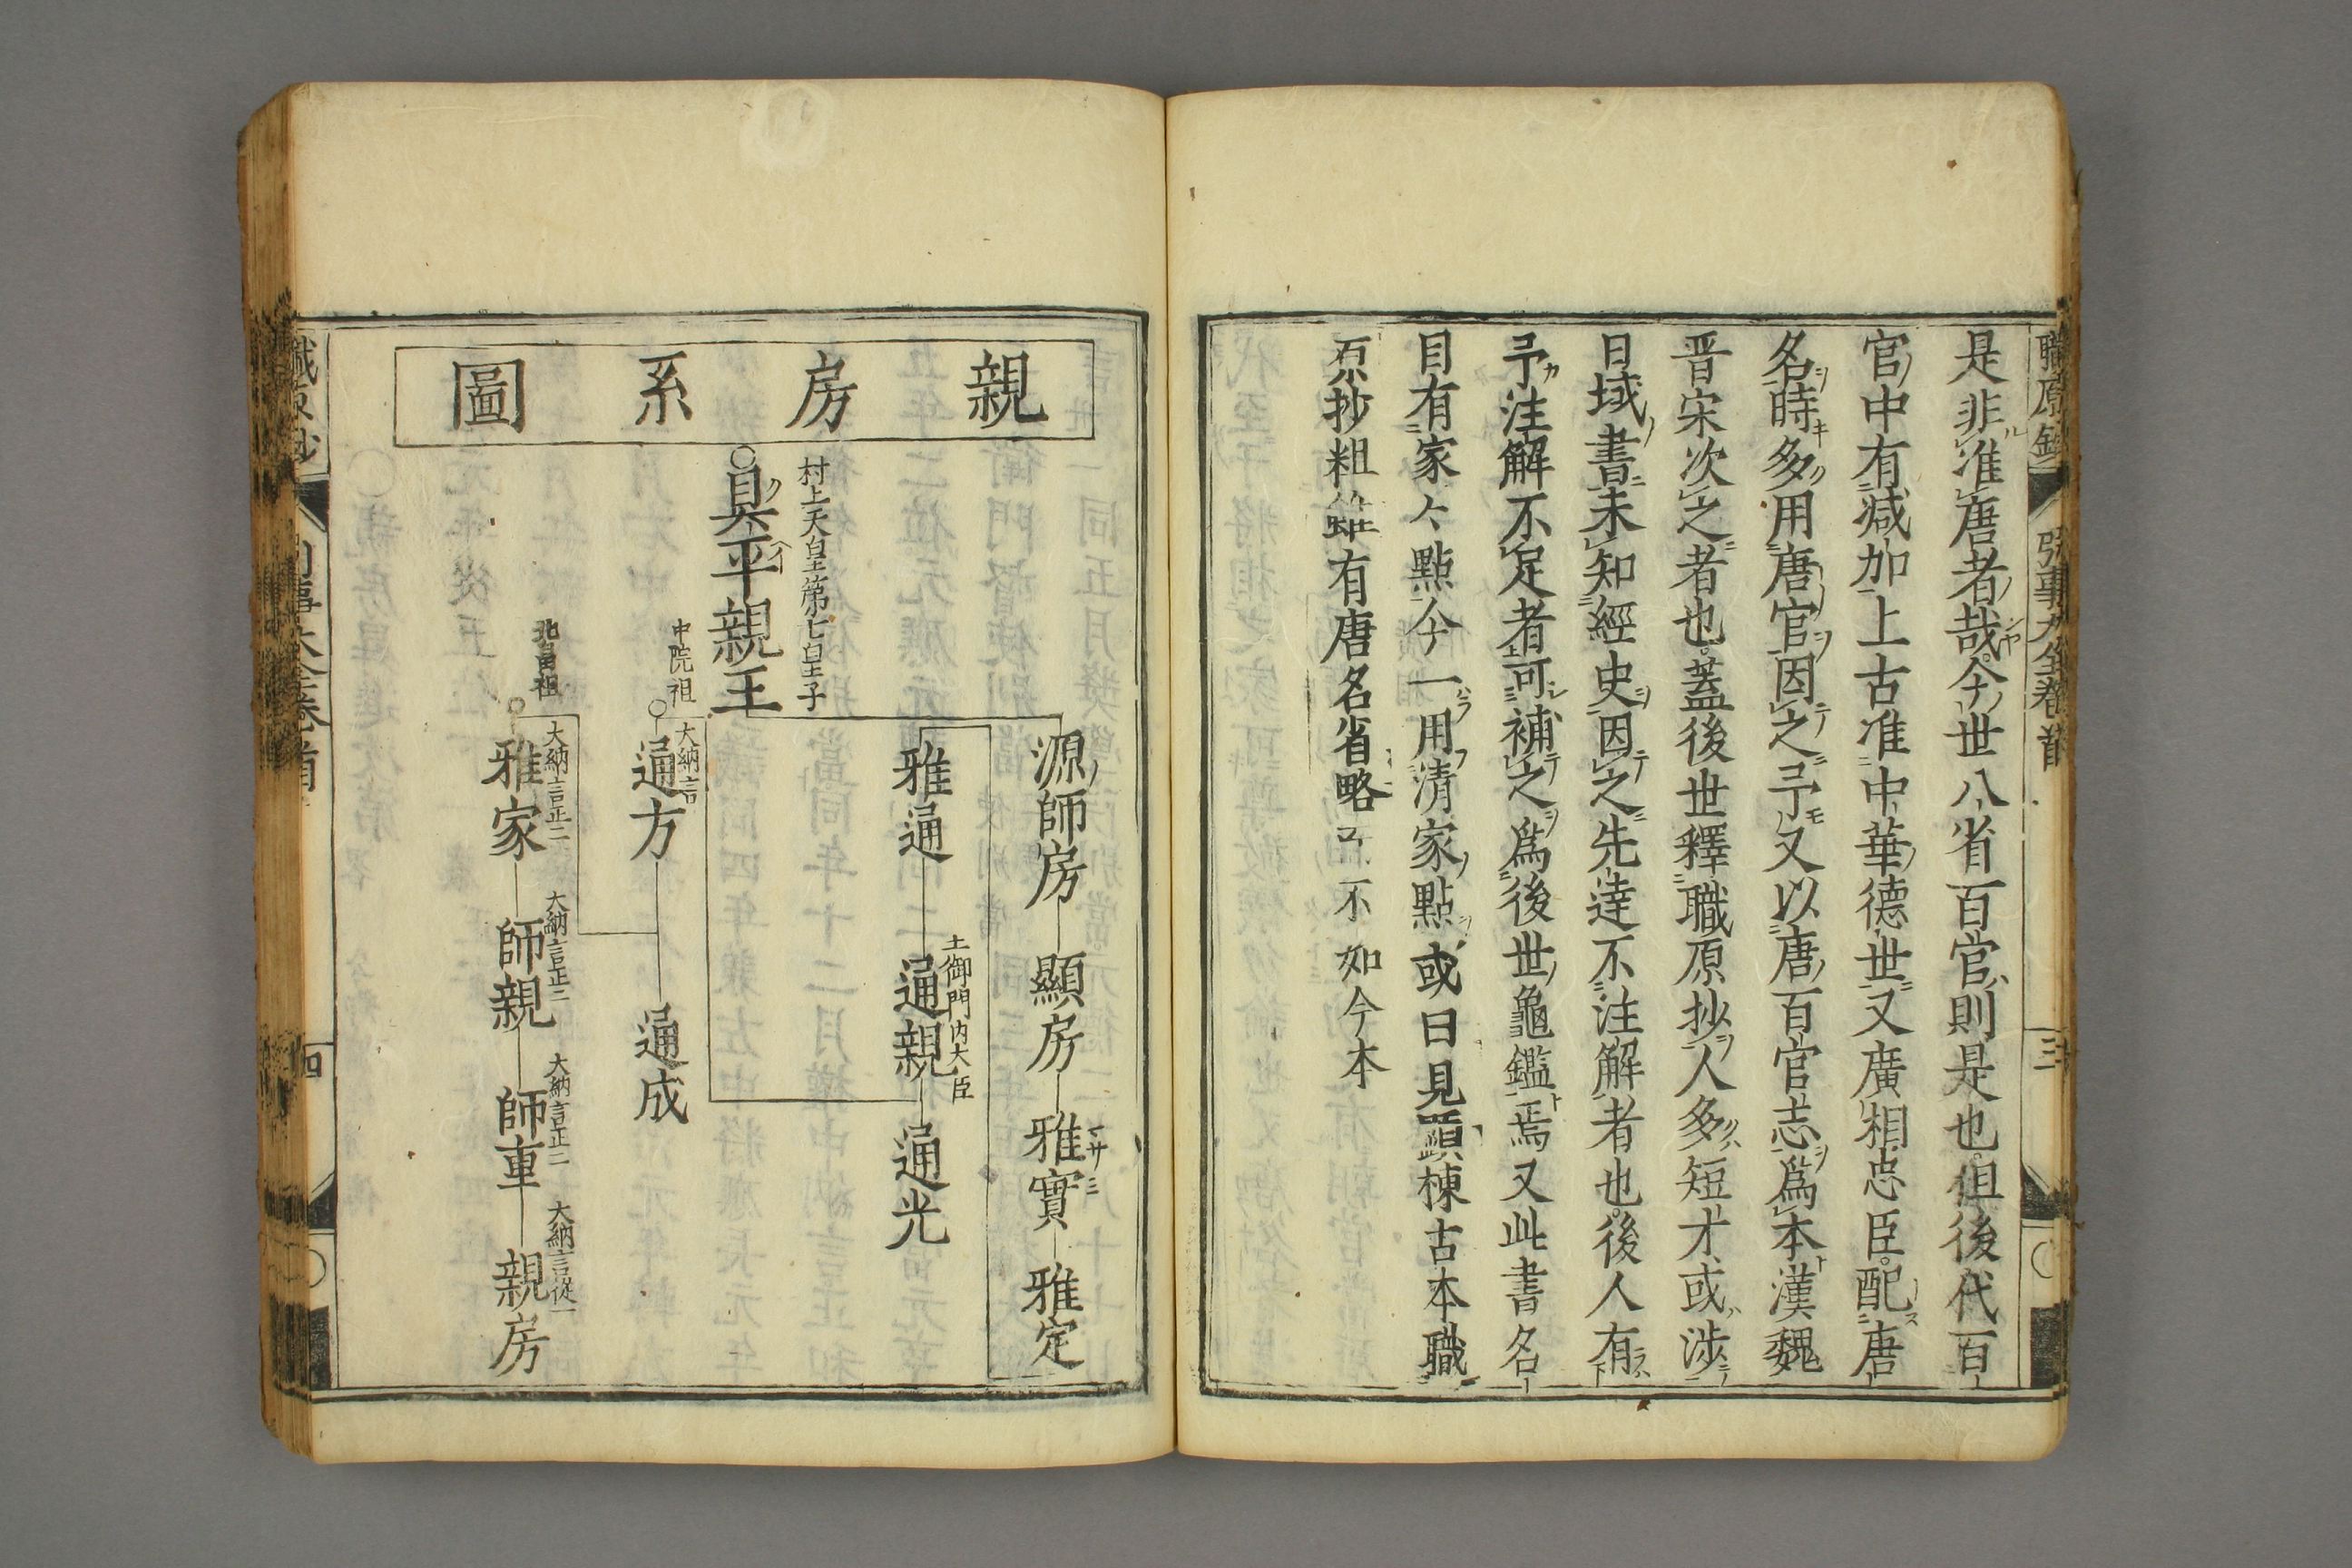 是非准唐者哉今世八省百官則是也但後代百
官中有减加上古准中華德世又廣相忠臣配唐
名時多用唐官因之予又以唐百官志爲本漢魏
晋宋次之者也蓋後世釋職原抄人多短才或渉
日域書未知經史因之先達不注解者也後人有
予注解不足者可補之爲後世龜鑑焉又此書名
目有家々點今一用清家點或曰見顕棟古本職
原抄粗雖有唐名省略不如今本
三
親房系圖
村上天皇第七皇子
具平親王
源師房
顯房
雅實
雅定
雅通
土御門内大臣
通親
通光
中院祖
大納言
通方
通成
北畠祖
大納言正二
雅家
大納言正二
師親
大納言正二
師重
大納言從一
親房
四